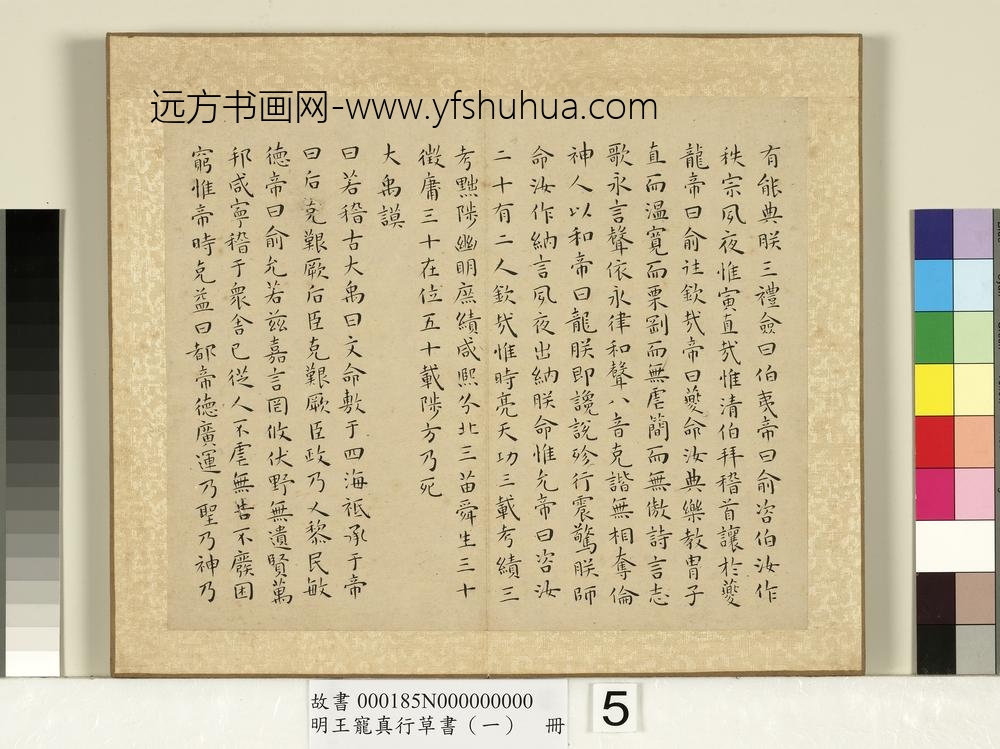 远方书画网-www.yfshuhua.com
有能典朕三禮僉曰伯夷帝曰俞咨伯汝作
秩宗夙夜惟寅直哉惟清伯拜稽首讓於夔
龍帝曰俞往欽哉帝曰夔命汝典樂教胄子
直而温寬而栗剛而無虐簡而無傲詩言志
歌永言聲依永律和聲八音克諧無相奪倫
神人以和帝曰龍朕即讒說殄行震驚朕師
命汝作納言夙夜出納朕命惟允帝曰咨汝
二十有二人欽哉惟時亮天功三載考績三
考黜陟幽明庶績咸熙分北三苗舜生三十
徵庸三十在位五十載陟方乃死
大禹謨
曰若稽古大禹曰文命敷于四海祗承于帝
曰后克艱厥后臣克艱厥臣政乃乂黎民敏
德帝曰俞允若茲嘉言罔攸伏野無遺賢萬
邦咸寧稽于衆舍已從人不虐無告不廢困
窮惟帝時克益曰都帝德廣運乃聖乃神乃
故書 000185N000000000
明王寵真行草書（一） 冊
5